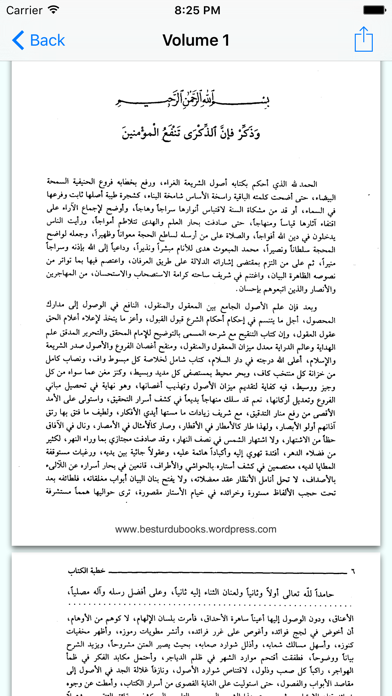 Carrier 8:25 PM
Back Volume 1
بسم الله الرحمن الرحيم
وَذَكِّرْ فَإِنَّ الذِّكْرَى تَنْفَعُ الْمُؤْمِنِينَ
الحمد لله الذي أحكم بكتابه أصول الشريعة الغراء، ورفع بخطابه فروع الحنيفية السمحة
البيضاء، حتى أضحت كلمته الباقية راسخة الأساس شامخة البناء، كشجرة طيبة أصلها ثابت وفرعها
في السماء، أو قد من مشكاة السنة لاقتباس أنوارها سراجاً وهاجاً، وأوضح لإجماع الآراء على
اقتفاء آثارها قياساً ومنهاجاً، حتى صادفت بحار العلم والهدى تتلاطم أمواجاً، ورأيت الناس
يدخلون في دين الله أفواجاً، والصلاة على من أرسله لساطع الحجة معواناً وظهيراً، وجعله لواضح
المحجة سلطاناً ونصيراً، محمد المبعوث هدى للأنام مبشراً ونذيراً، وداعياً إلى الله بإذنه وسراجاً
منيراً، ثم على من التزم بمقتضى إشاراته الدلالة على طريق العرفان، واعتصم فيها بما تواتر من
نصوصه الظاهرة البيان، واغتنم في شريف ساحته كرامة الاستصحاب والاستحسان، من المهاجرين
والأنصار والذين اتبعوهم بإحسان.
وبعد فإن علم الأصول الجامع بين المعقول والمنقول، النافع في الوصول إلى مدارك
المحصول، أجل ما يتنسم في إحكام أحكام الشرع قبول القبول، وأعز ما يتخذ لإعلاء أعلام الحق
عقول العقول، وإن كتاب التنقيح مع شرحه المسمى بالتوضيح للإمام المحقق والنحرير المدقق علم
الهداية وعالم الدراية معدل ميزان المعقول والمنقول، ومنقح أغصان الفروع والأصول صدر الشريعة
والإسلام، أعلى الله درجته في دار السلام، كتاب شامل لخلاصة كل مبسوط واف، ونصاب كامل
من خزانة كل منتخب كاف، وبحر محيط بمستصفى كل مديد وبسيط، وكنز مغن عما سواه من كل
وجيز ووسيط، فيه كفاية لتقويم ميزان الأصول وتهذيب أغصانها، وهو نهاية في تحصيل مباني
الفروع وتعديل أركانها، نعم قد سلك منهاجاً بديعاً في كشف أسرار التحقيق، واستولى على الأمد
الأقصى من رفع منار التدقيق، مع شريف زيادات ما مستها أيدي الأفكار، ولطيف ما فتق بها رتق
آذانهم أولو الأبصار، ولهذا طار كالأمطار في الأقطار، وصار كالأمثال في الأمصار، ونال في الآفاق
حظاً من الاشتهار، ولا اشتهار الشمس في نصف النهار، وقد صادفت مجتازي بما وراء النهر، لكثير
من فضلاء الدهر، أفئدة تهوي إليه وأكباداً هائمة عليه، وعقولاً جاثية بين يديه، ورغبات مستوقفة
المطايا لديه، معتصمين في كشف أستاره بالحواشي والأطراف، قانعين في بحار أسراره عن اللآلىء
بالأصداف، لا تحل أنامل الأنظار عقد معضلاته، ولا يفتح بنان البيان أبواب مغلقاته، فلطائفه بعد
تحت حجب الألفاظ مستورة وخرائده في خيام الأستار مقصورة، ترى حواليها همماً مستشرفة
www.besturdubooks.wordpress.com
٦ خطبة الكتاب
حامداً للّه تعالى أولاً وثانياً ولعنان الثناء إليه ثانياً، وعلى أفضل رسله وآله مصلياً،
الأعناق، ودون الوصول إليها أعيناً ساهرة الأحداق، فأمرت بلسان الإلهام، لا كوهم من الأوهام،
أن أخوض في لجج فوائده وأغوص على غرر فرائده، وأنشر مطويات رموزه، وأظهر مخفيات
كنوزه، وأسهل مسالك شعابه، وأذلل شوارد صعابه، بحيث يصير المتن مشروحاً، ويزيد الشرح
بياناً ووضوحاً، فطفقت أقتحم موارد السهر في ظلم الدياجر، وأحتمل مكابد الفكر في ظمأ
الهواجر، راكباً كل صعب وذلول، لاقتناص شوارد الأصول، ونازفاً علالة الجد في الأصول إلى
مقاصد الأبواب والفصول، حتى استوليت على الغاية القصوى من أسرار الكتاب، وأمطت عن وجوه